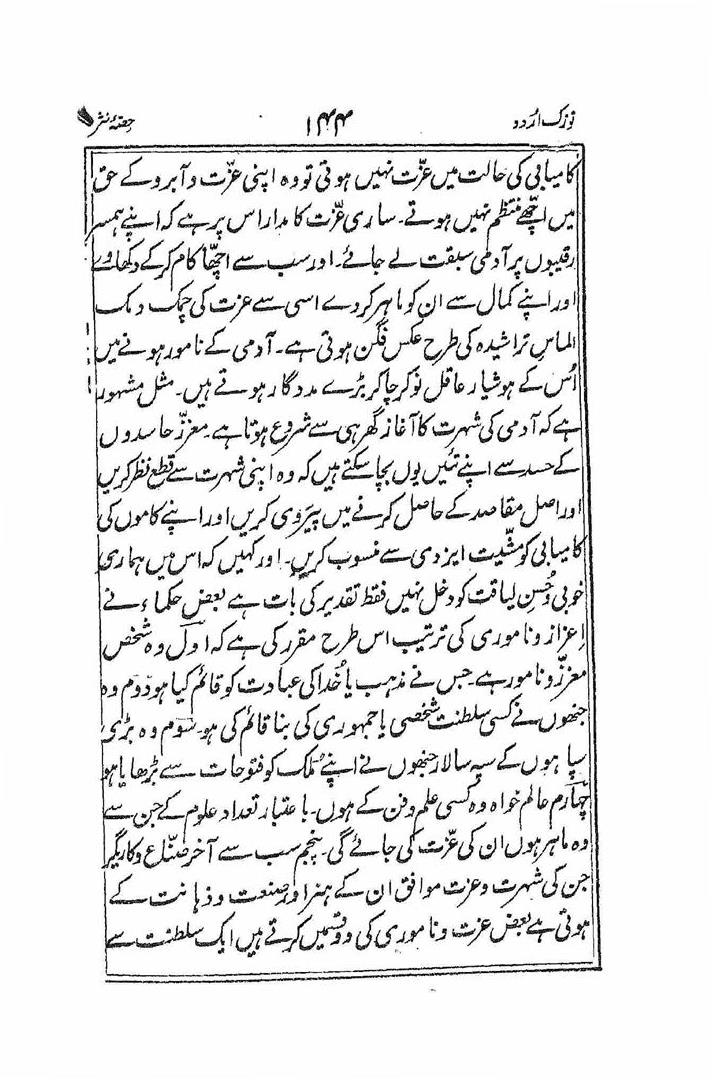 تزک اردو ۱۴۴ حصۂ نثر
کامیابی کی حالت میں عزّت نہیں ہوتی تو وہ اپنی عزّت و آبرو کے حق
میں اچھّے منتظم نہیں ہوتے۔ ساری عزّت کا مدار اس پر ہے کہ اپنے ہمسر
رقیبوں پر آدمی سبقت لے جائے۔ اور سب سے اچھّا کام کرکے دکھاوے
اور اپنے کمال سے ان کو ماہر کردے اسی سے عزت کی چمک دمک
الماسِ تراشیدہ کی طرح عکس فگن ہوتی ہے۔ آدمی کے نامور ہونے میں
اُس کے ہوشیار عاقل نوکر چاکر بڑے مددگار ہوتے ہیں۔ مثل مشہور
ہے کہ آدمی کی شہرت کا آغاز گھر ہی سے شروع ہوتا ہے۔ معزّز حاسدوں
کے حسد سے اپنے تئیں یوں بچا سکتے ہیں کہ وہ اپنی شہرت سے قطع نظر کریں
اور اصل مقاصد کے حاصل کرنے میں پیروی کریں اور اپنے کاموں کی
کامیابی کو مشیّت ایزدی سے منسوب کریں۔ اور کہیں کہ اس میں ہماری
خوبی و حُسنِ لیاقت کو دخل نہیں فقط تقدیر کی بات ہے بعض حکماء نے
اِعزاز و ناموری کی ترتیب اس طرح مقرر کی ہے کہ اول وہ شخص
معزّز و نامور ہے۔ جس نے مذہب یا خُدا کی عبادت کو قائم کیا ہو دوم وہ
جنھوں نے کسی سلطنت شخصی یا جمہوری کی بنا قائم کی ہو۔ سوم وہ بڑی
سپاہوں کے سپہ سالار جنھوں نے اپنے مُلک کو فتوحات سے بڑھایا ہو
چہارم عالم خواہ وہ کسی علم و فن کے ہوں۔ باعتبار تعداد علوم کے جن سے
وہ ماہر ہوں ان کی عزّت کی جائے گی۔ پنجم سب سے آخر صنّاع و کاریگر
جن کی شہرت و عزت موافق ان کے ہنر اور صنعت و ذہانت کے
ہوتی ہے بعض عزت و ناموری کی دو قسمیں کرتے ہیں ایک سلطنت سے